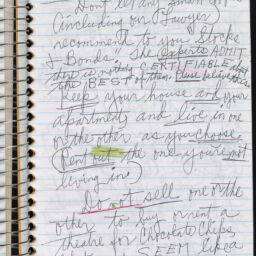 Don't let any
(including our Lawyer)
recommend to you Stocks
& Bonds. The experts ADMIT
this is not a CERTIFIABLE
the BEST of them. Please believe this.
Keep your house and your
apartment and live in one
or the other as you choose.
Rent out the one you're not
living in.
Do not sell one or the
other to buy or rent a
theatre for Chocolate Chips,
SEEM like a